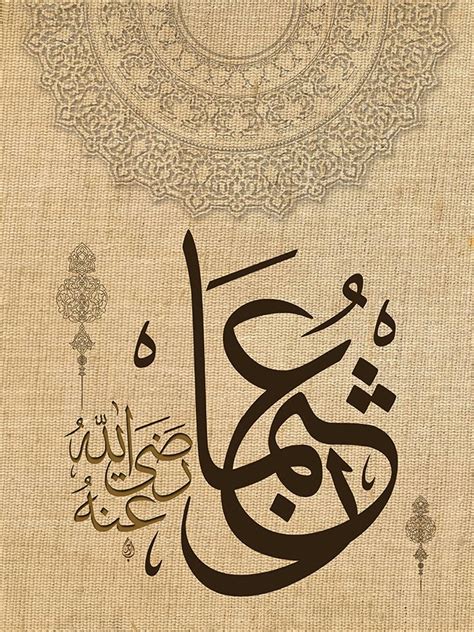 عُثمان
رَضيَ اللّٰهُ
عنهُ